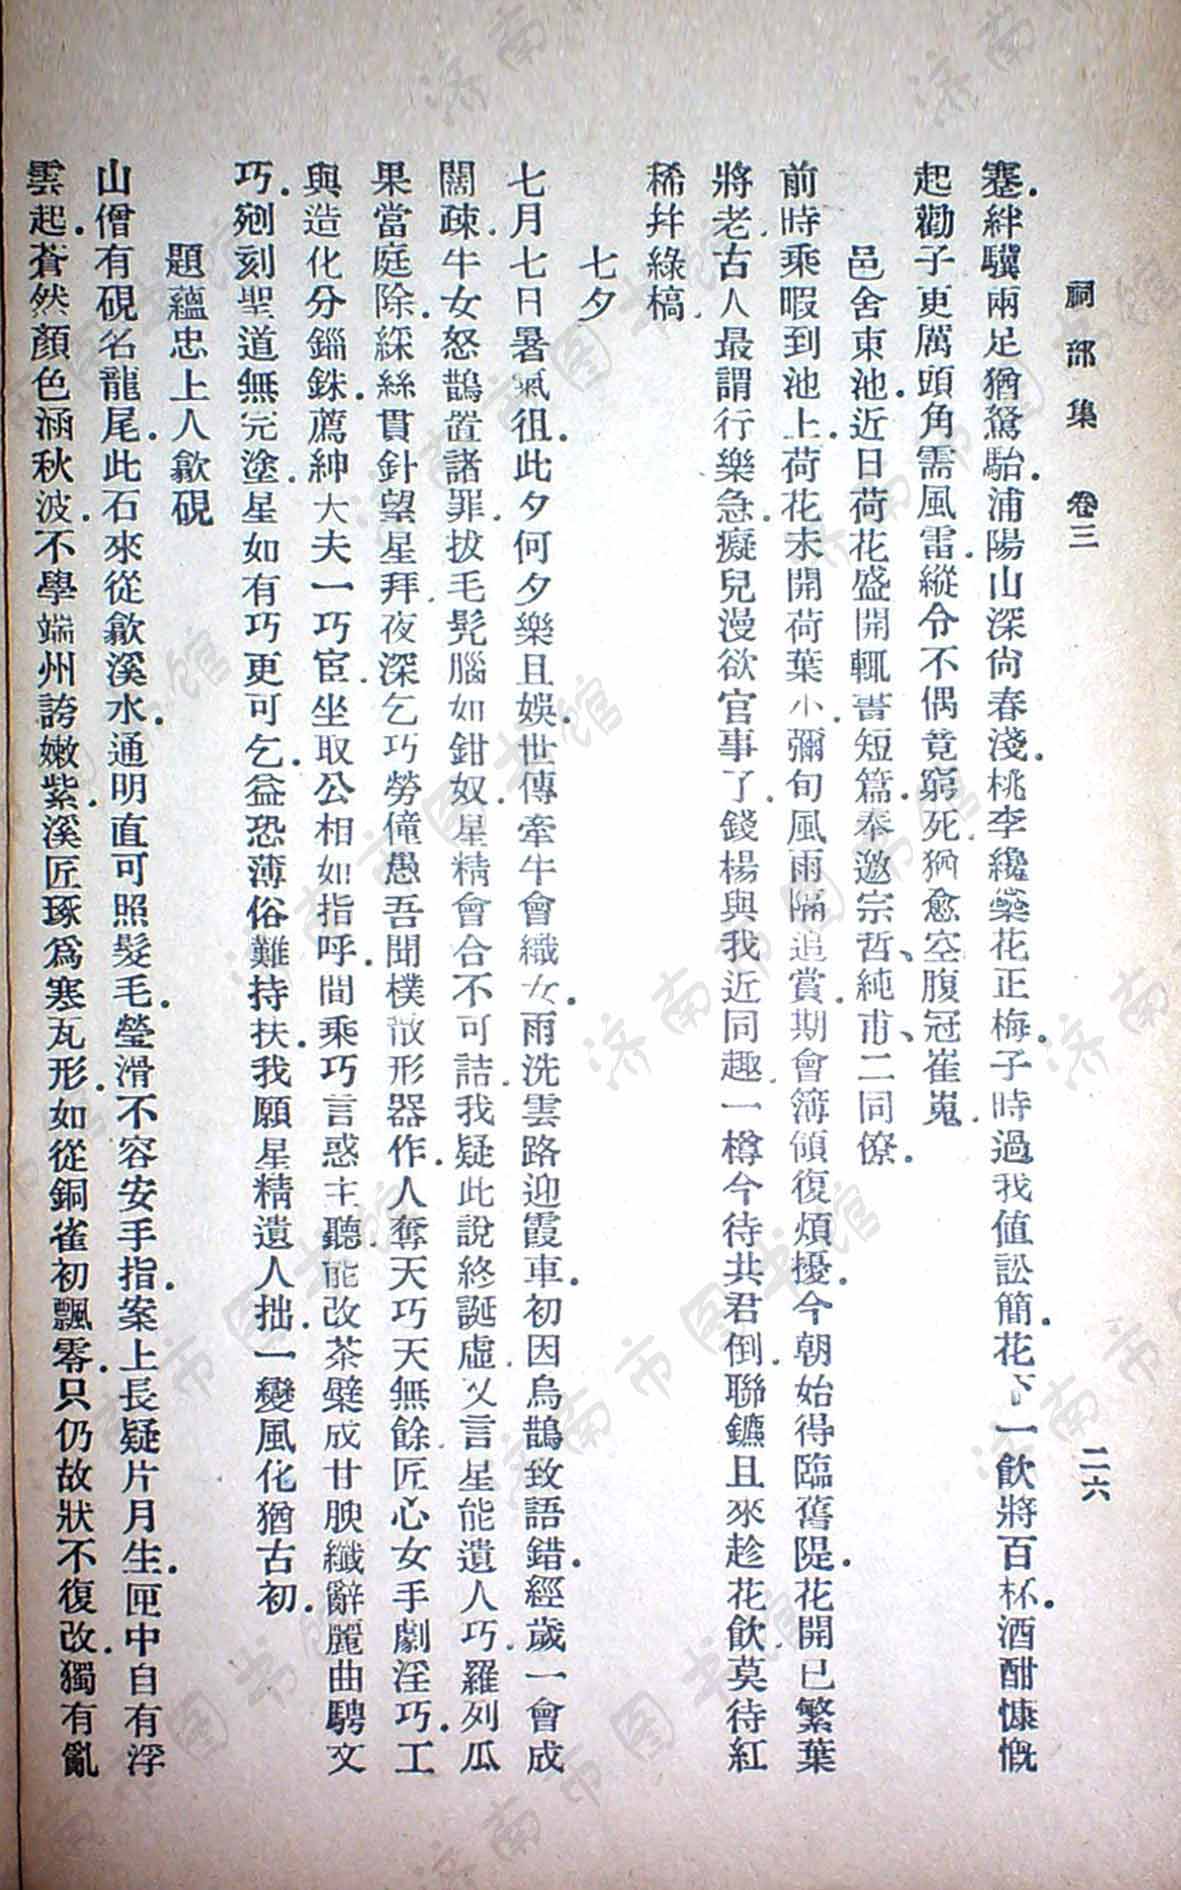 祠部集 卷三 二六
蹇.絆驥兩足猶駑駘.浦陽山深尙春淺.桃李纔蘂花正梅.子時過我値訟簡.花下一飮將百杯.酒酣慷慨
起勸子更厲頭角需風雷.縱令不偶竟窮死.猶愈空腹冠崔嵬.
邑舍東池.近日荷花盛開輒書短篇.奉邀宗哲、純甫、二同僚.
前時乘暇到池上.荷花未開荷葉小.彌旬風雨隔追賞.期會簿領復煩擾.今朝始得臨舊隄.花開已繁葉
將老.古人最謂行樂急.癡兒漫欲官事了.錢楊與我近同趣.一樽今待共君倒.聯鑣且來趁花飮.莫待紅
稀幷綠槁.
七夕
七月七日暑氣徂.此夕何夕樂且娛.世傳牽牛會織女.雨洗雲路迎霞車.初因烏鵲致語錯.經歲一會成
闊疎.牛女怒鵲置諸罪.拔毛髡腦如鉗奴.星精會合不可詰.我疑此說終誕虛.又言星能遺人巧.羅列瓜
果當庭除.綵絲貫針望星拜.夜深乞巧勞僮愚.吾聞樸散形器作.人奪天巧天無餘.匠心女手劇淫巧.工
與造化分錙銖.薦紳大夫一巧宦.坐取公相如指呼.間乘巧言惑主聽.能改荼檗成甘腴.纖辭麗曲騁文
巧.剜刻聖道無完塗.星如有巧更可乞.益恐薄俗難持扶.我願星精遺人拙.一變風化猶古初.
題蘊忠上人歙硯
山僧有硯名龍尾.此石來從歙溪水.通明直可照髮毛.瑩滑不容安手指.案上長疑片月生.匣中自有浮
雲起.蒼然顏色涵秋波.不學端州誇嫩紫.溪匠琢爲寒瓦形.如從銅雀初飄零.只仍故狀不復改.獨有亂